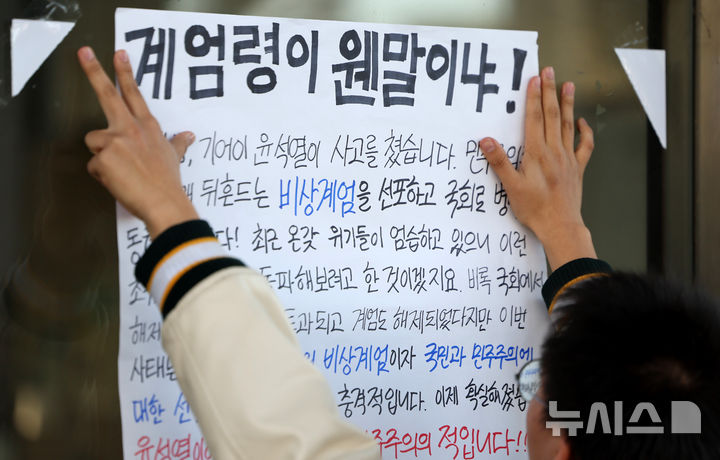 계엄령이 웬말이냐!
기어이 윤석열이 사고를 쳤습니다.
뒤흔드는 비상계엄을 선포하고 국회로
최근 온갖 위기들이 엄습하고 있으니 이런
돌파해보려고 한 것이겠지요 비록 국회에서
되고 계엄도 해제되었다지만 이번
비상계엄이자 국민과 민주주의에
대한 충격적입니다. 이제 확실해졌습
윤석열 민주주의의 적입니다!!
뉴시스